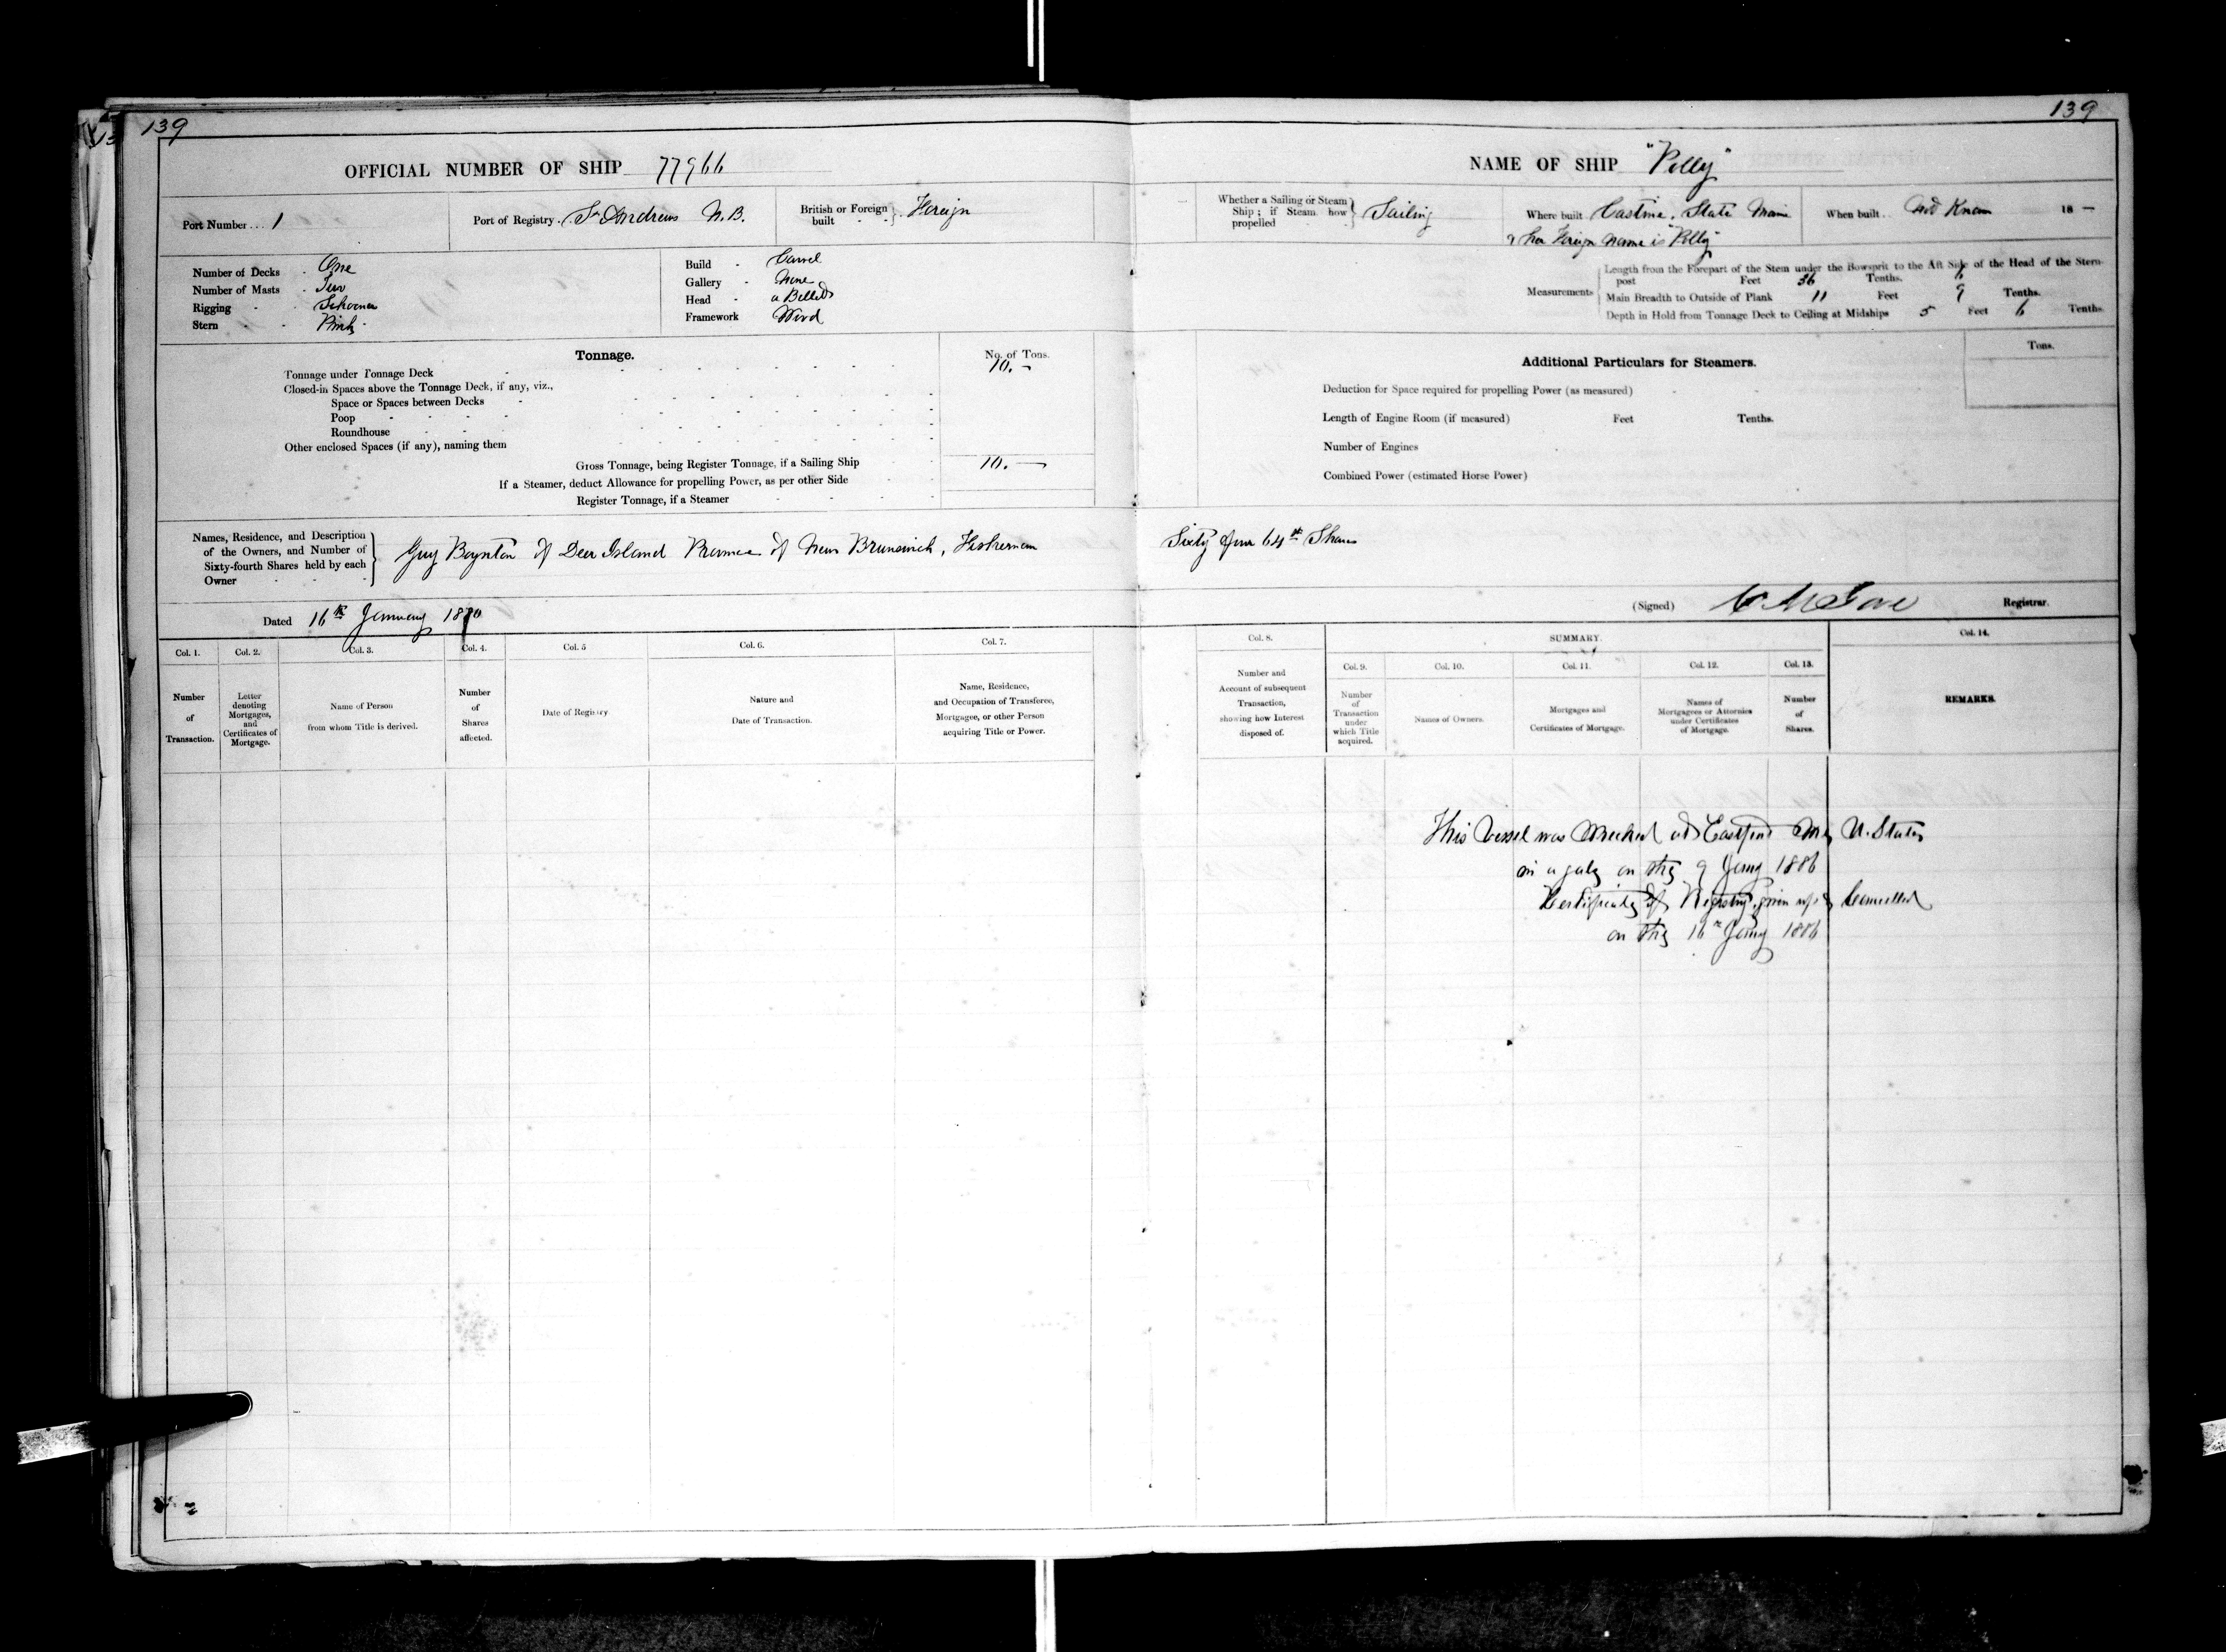 139
139
OFFICIAL NUMBER OF SHIP 77966
NAME OF SHIP "Polly"
Port Number... 1
Port of Registry. St Andrews N.B.
British or Foreign built Foreign
Whether a Sailing or Steam Ship; if Steam how propelled Sailing
Where built Castine, State Maine
& her Foreign name is "Polly"
When built.. not Known 18 —
Number of Decks One
Number of Masts Two
Rigging Schooner
Stern Pink
Build Carvel
Gallery None
Head a Billet
Framework Wood
Measurements
Length from the Forepart of the Stem under the Bowsprit to the Aft Side of the Head of the Stern-
post Feet 36 Tenths.
Main Breadth to Outside of Plank 11 Feet 9 Tenths.
Depth in Hold from Tonnage Deck to Ceiling at Midships 5 Feet 6 Tenths
Tonnage. No. of Tons.
Tonnage under Tonnage Deck 10. –
Closed-in Spaces above the Tonnage Deck, if any, viz.,
Space or Spaces between Decks
Poop
Roundhouse
Other enclosed Spaces (if any), naming them
Gross Tonnage, being Register Tonnage, if a Sailing Ship 10. —
If a Steamer, deduct Allowance for propelling Power, as per other Side
Register Tonnage, if a Steamer
Additional Particulars for Steamers. Tons.
Deduction for Space required for propelling Power (as measured)
Length of Engine Room (if measured) Feet Tenths.
Number of Engines
Combined Power (estimated Horse Power)
Names, Residence, and Description
of the Owners, and Number of
Sixty-fourth Shares held by each
Owner
Guy Boynton of Deer Island Province of New Brunswick, Fisherman Sixty four 64th Shares
Dated 16th January 1880
(Signed) Registrar.
Col. 1. Col. 2. Col. 3. Col. 4. Col. 5 Col. 6. Col. 7.
Number of Transaction.
Letter denoting Mortgages, and Certificates of Mortgage.
Name of Person from whom Title is derived.
Number of Shares affected.
Date of Registry.
Nature and Date of Transaction.
Name, Residence, and Occupation of Transferee, Mortgagee, or other Person acquiring Title or Power.
Col. 8. SUMMARY. Col. 14.
Col. 9. Col. 10. Col. 11. Col. 12. Col. 13.
Number and Account of subsequent Transaction, showing how Interest disposed of.
Number of Transaction under which Title acquired.
Names of Owners.
Mortgages and Certificates of Mortgage.
Names of Mortgagees or Attornies under Certificates of Mortgage.
Number of Shares.
REMARKS.
This Vessel was Wrecked at Eastport Me, U. States
in a gale on the 9 Jany 1886
Certificate of Registry given up & Cancelled
on the 16th Jany 1886